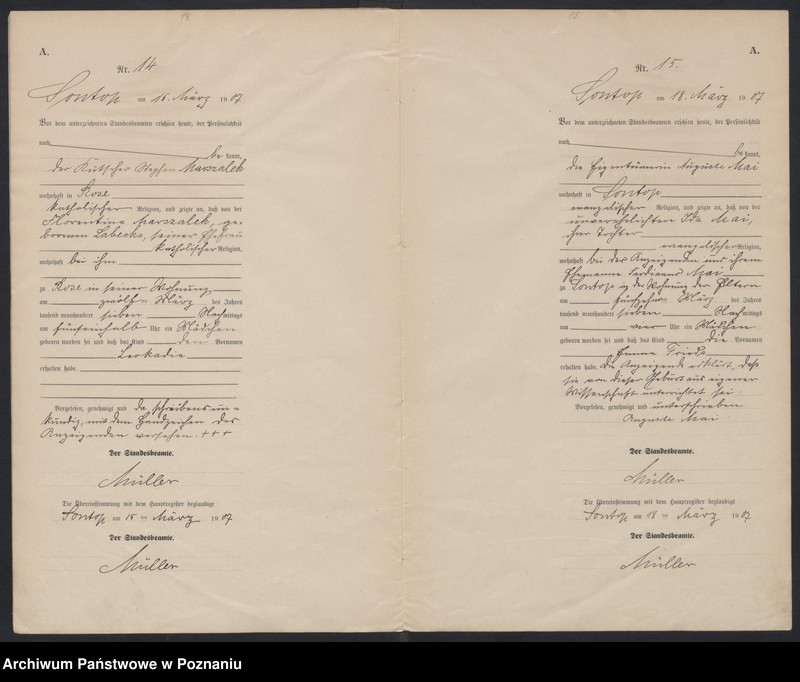 14.
A.
Nr. 14
Sontop am 15. März 1907
Vor dem unterzeichneten Standesbeamten erschien heute, der Persönlichkeit
nach
bekannt,
der Kutscher Stephan Marszalek
wohnhaft in Rose
katholischer Religion, und zeigte an, daß von der
Florentina Marszalek, ge-
borenen Labecka, seiner Ehefrau
katholischer Religion,
wohnhaft bei ihm
zu Rose in seiner Wohnung
am zwölften März des Jahres
tausend neunhundert sieben Nachmittags
um fünfeinhalb Uhr ein Mädchen
geboren worden sei und daß das Kind den Vornamen
Leokadia
erhalten habe.
Vorgelesen, genehmigt und da schreibensun-
kundig, mit dem Handzeichen des
Anzeigenden versehen. +++
Der Standesbeamte.
Müller
Die Übereinstimmung mit dem Hauptregister beglaubigt
Sontop am 15 ten März 1907
Der Standesbeamte.
Müller
15.
A.
Nr. 15.
Sontop am 18. März 1907
Vor dem unterzeichneten Standesbeamten erschien heute, der Persönlichkeit
nach
bekannt,
die Eigentümerin Auguste Mai
wohnhaft in Sontop
evangelischer Religion, und zeigte an, daß von der
unverehelichten Ida Mai,
ihrer Tochter
evangelischer Religion,
wohnhaft bei der Anzeigenden und ihrem
Ehemanne Ferdinand Mai
zu Sontop in der Wohnung der Eltern
am fünfzehnten März des Jahres
tausend neunhundert sieben Nachmittags
um vier Uhr ein Mädchen
geboren worden sei und daß das Kind die Vornamen
Emma Frieda
erhalten habe. Die Anzeigende erklärt, daß
sie von dieser Geburt aus eigener
Wissenschaft unterrichtet sei.
Vorgelesen, genehmigt und unterschrieben
Auguste Mai.
Der Standesbeamte.
Müller
Die Übereinstimmung mit dem Hauptregister beglaubigt
Sontop am 18 ten März 1907
Der Standesbeamte.
Müller
Archiwum Państwowe w Poznaniu